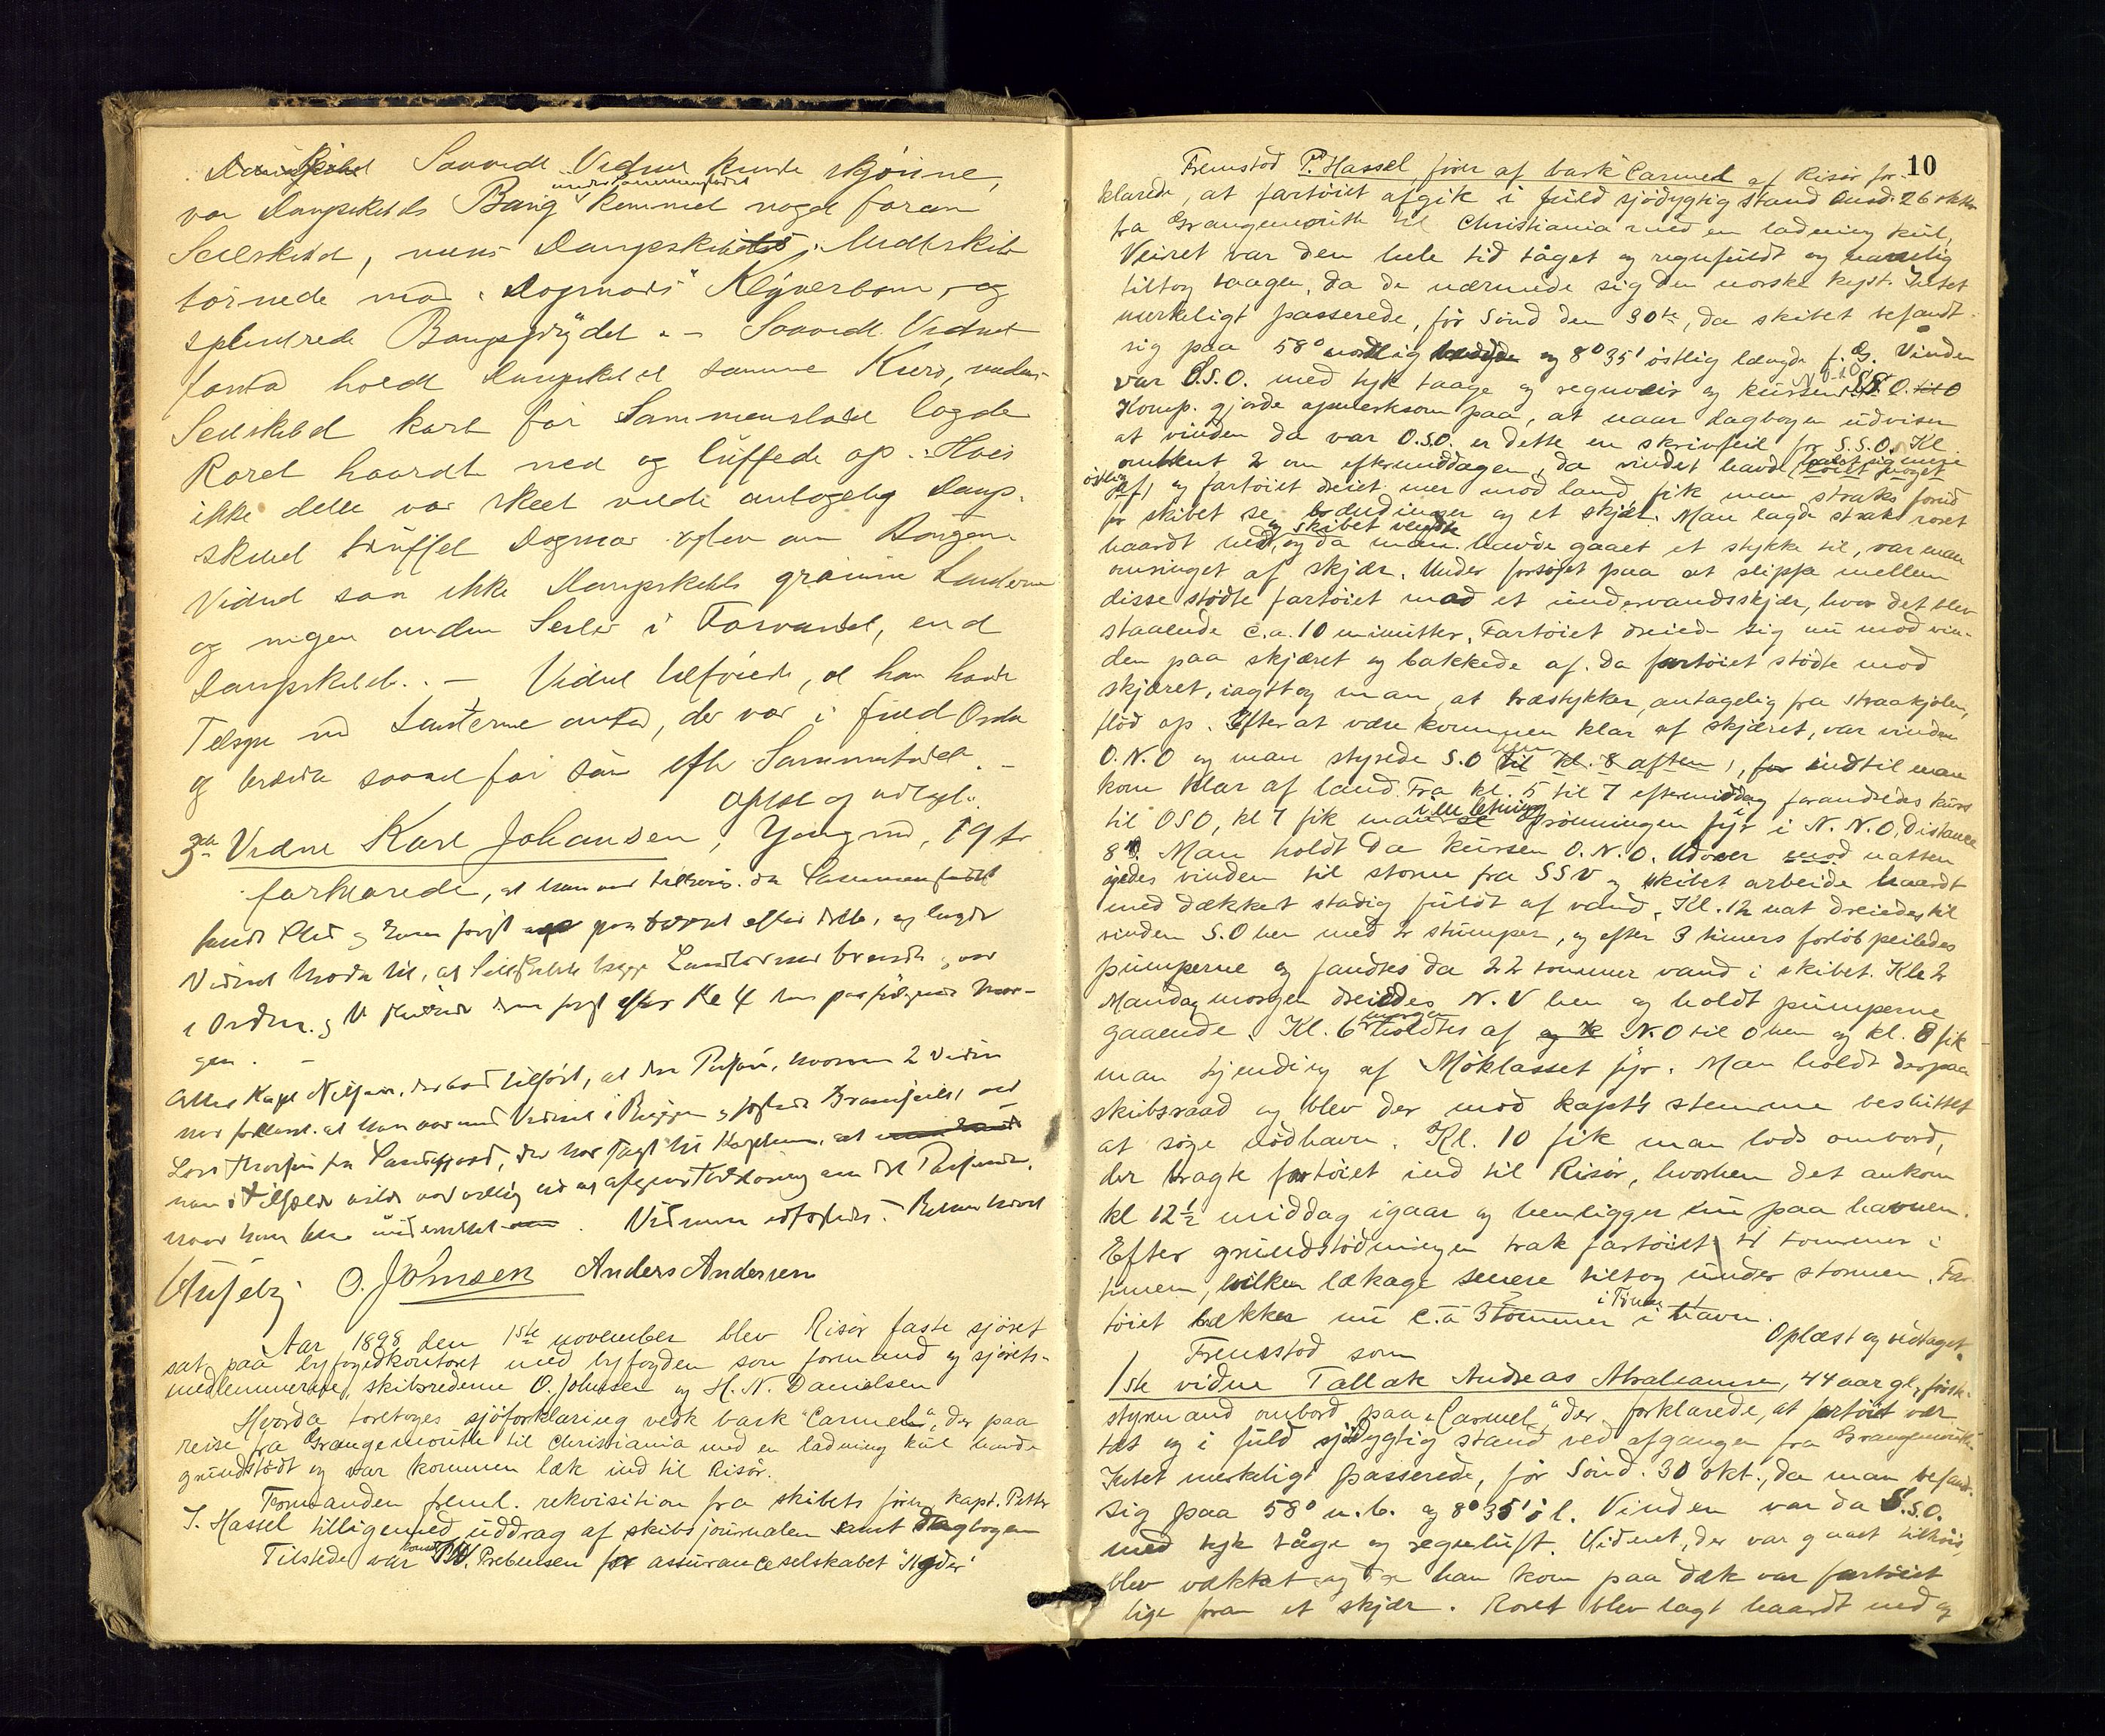 Saavidt Vidnet kunde skjönne,
var Dampskibets Baug ved Sammenstödet kommet noget foran
Seilskibet, mens Dampskibet midtskibs
törnede mod "Dagmars" Klyverbom, og
splintrede Baugsprydet. — Saavidt Vidnet
forstod holdt Dampskibet samme Kurs, medens
Seilskibet kort för Sammenstödet lagde
Roret haardt ned og luffede op. Hvis
ikke dette var skeet vilde antagelig Damp-
skibet truffet Dagmar agten om Bougen.
Vidnet saa ikke Dampskibets grönne Lanterne
og ingen anden Seiler i Farvandet, end
Dampskibet. — Vidnet tilföiede, at han havde
Tilsyn med Lanternerne ombord, der var i fuld Orden
og brændte saavel för som efter Sammenstödet. —
Oplæst og vedtaget.
3die Vidne Karl Johansen, Jungmand, 19 Aar
forklarede, at han var tilkøis da Sammenstödet
fandt Sted og kom först op paa Dækket efter dette, og lagde
Vidnet Mærke til, at Seilskibets begge Lanterner brændte og var
i Orden og slukkedes dem först efter Kl 4 den paafölgende Mor-
gen. —
Atter Kapt Nilsen, der bad tilfört, at den Person, hvorom 2 Vidne
har forklaret at han var med Vidnet i Riggen
Lars fra Sandefjord, der har sagt til Kaptein, at
han i Tilfælde vilde være villig til at afgive Forklaring om det Passerede,
naar han blev indvarslet. Vidnerne edfæstedes. Retten hævet
O. Johnsen Anders Andersen
Aar 1898 den 1ste november blev Risör faste sjöret
sat paa byfogedkontoret med byfogden som formand og sjörets-
medlemmerne, skibsrederne O. Johnsen og H. N. Danielsen
Hvorda foretoges sjöforklaring vedk bark "Carmel", der paa
reise fra Grangemouth til Christiania med en ladning kul havde
grundstödt og var kommen læk ind til Risör.
Formanden freml. rekvisition fra skibets förer, kapt. Petter
J. Hassel tilligemed uddrag af skibsjournalen samt dagbogen
Tilstede var konsul Prebensen for assuranceselskabet "Agder"
10
Fremstod P. Hassel, förer af bark "Carmel" af Risör for-
klarede, at fartöiet afgik i fuld sjödygtig stand onsd. 26 oktbr
fra Grangemouth til Christiania med en ladning kul,
Veiret var den hele tid tåget og regnfuldt og navnlig
tiltog taagen, da de nærmede sig den norske kyst. Intet
merkeligt passerede, för Sönd den 30te, da skibet befandt
sig paa 58° nordlig bredde og 8° 35' östlig længde f. G. Vinden
var O.S.O. med tyk taage og regnveir og kursen N.O. til O
Komp. gjorde opmerksom paa, at naar dagbogen udviser
at vinden da var O.S.O. er dette en skrivfeil for S.S.O. Kl
omtrent 2 om eftermiddagen, da vinden havde lagt sig mere
östlig og fartöiet dreiet mer mod land, fik man straks forud
for skibet se brændinger og et skjær. Man lagde straks roret
haardt ned, og skibet vendte og da man havde gaaet et stykke til, var man
omringet af skjær. Under forsöget paa at slippe mellem
disse stödte fartöiet mod et undervandsskjær, hvor det blev
staaende c.a. 10 minutter. Fartöiet dreiede sig nu mod vin-
den paa skjæret og bakkede af. Da fartöiet stödte mod
skjæret, iagttog man, at træstykker, antagelig fra straakjölen,
flöd op. Efter at være kommen klar af skjæret, var vinden
O.N.O og man styrede S.O til Kl. 8 aften, for indtil man
kom klar af land. Fra kl. 5 til 7 eftermiddag forandredes kurs
til OSO, kl 7 fik man i en letning Grönningen fyr i N.N.O. distance
8'. Man holdt da kursen O.N.O. Udover mod natten
ögedes vinden til storm fra SSV og skibet arbeide haardt
med dækket stadig fuldt af vand. Kl. 12 nat dreiedes til
vinden S.O hen med 2 stumper, og efter 3 timers forlöb peiledes
pumperne og fandtes da 22 tommer vand i skibet. Kl 2
Mandag morgen dreiedes N.V hen og holdt pumperne
gaaende. Kl. 6 morgen holdtes af N.O til O hen og kl. 8 fik
man kjending af Möklasset fyr. Man holdt derpaa
skibsraad og blev der mod kapt's stemme besluttet
at söge nödhavn. Kl. 10 fik man lods ombord,
der bragte fartöiet ind til Risör, hvorhen det ankom
kl 12½ middag igaar og henligger nu paa havnen.
Efter grundstödningen trak fartöiet 11 tommer i
timen, hvilken lækage senere tiltog under stormen. Far-
töiet lækker nu c.a 3 tommer i Timen i havn.
Oplæst og vedtaget.
Fremstod som
1ste vidne Tallak Andreas Abrahamsen, 44 aar gl., först-
styrmand ombord paa "Carmel", der forklarede, at fartöiet var
tæt og i fuld sjödygtig stand ved afgangen fra Grangemouth.
Intet merkeligt passerede, för Sönd. 30 okt., da man befandt
sig paa 58° n.b. og 8° 35' ö l. Vinden var da S.S.O.
med tyk tåge og regnluft. Vidnet, der var gaaet tilköis,
blev vækket og da han kom paa dæk var fartöiet
lige foran et skjær. Roret blev lagt haardt ned og